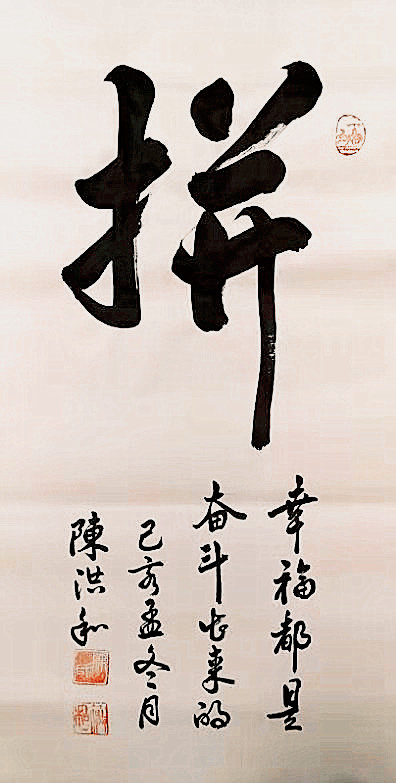 拼
幸福都是
奋斗出来的
己亥孟冬月
陳洪和